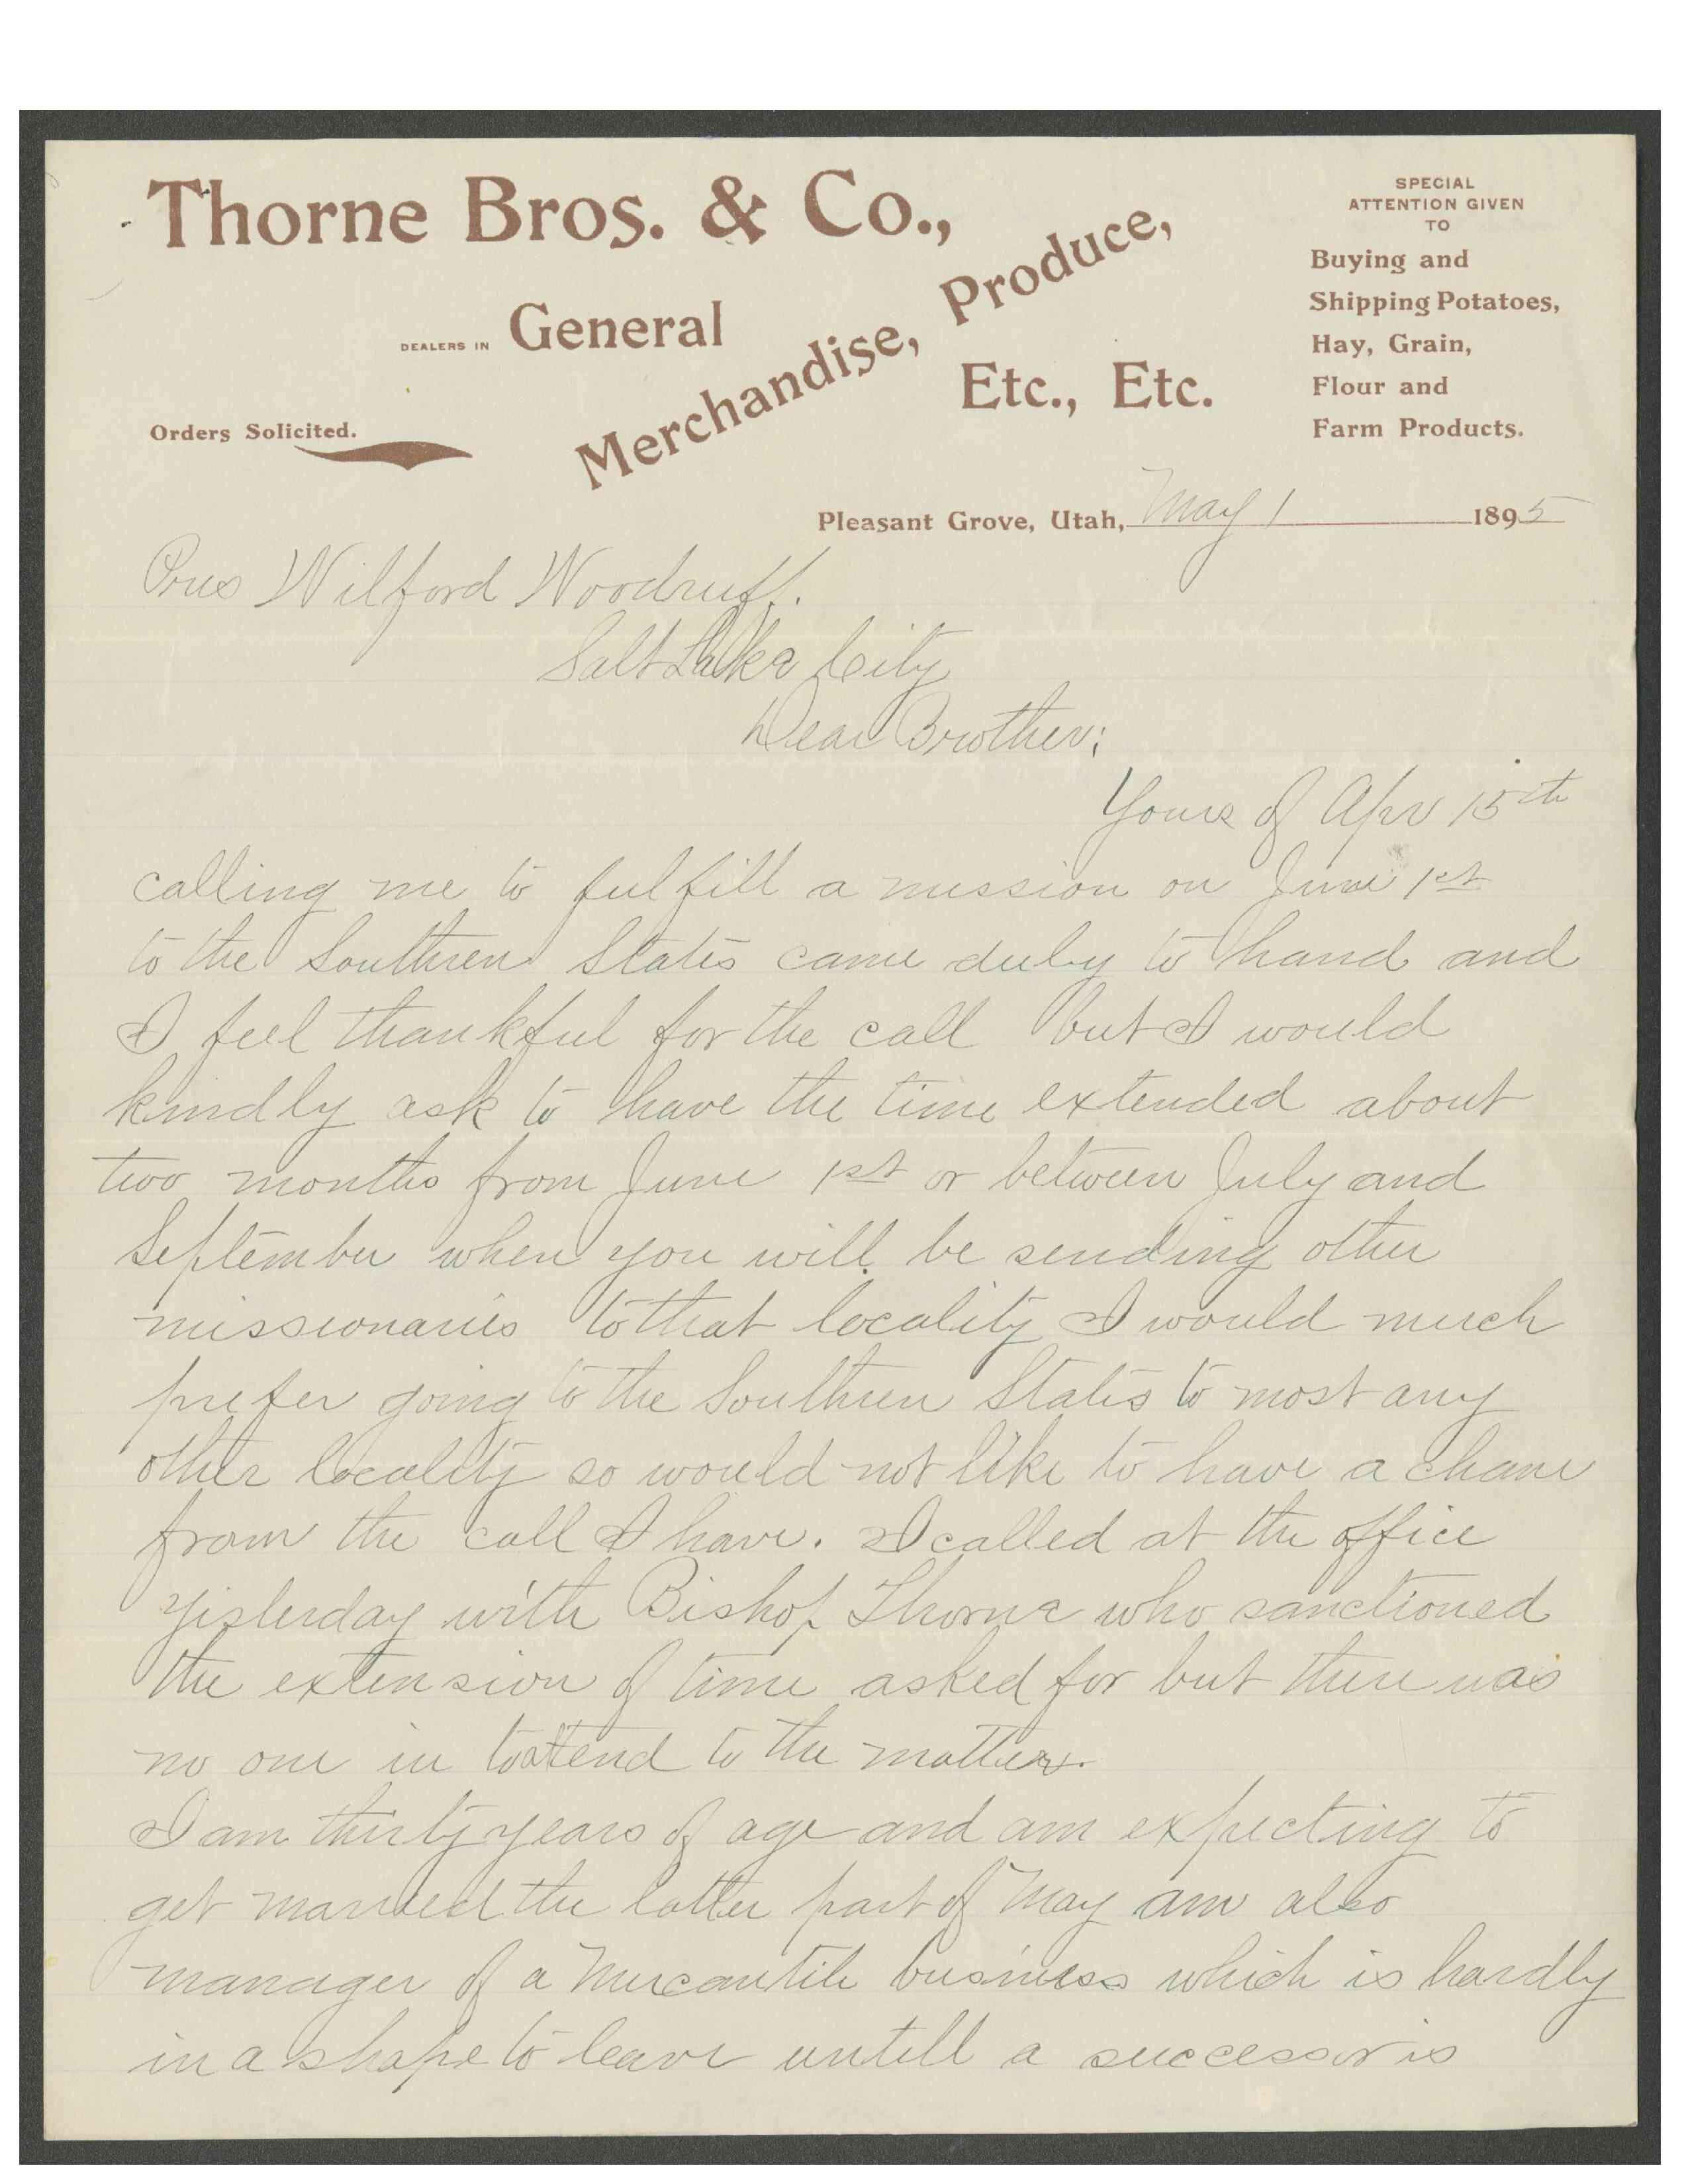 Thorne Bros. & Co.,
DEALERS IN General
Merchandise, Produce,
Etc., Etc.
Orders Solicited.
SPECIAL
ATTENTION GIVEN
TO
Buying and
Shipping Potatoes,
Hay, Grain,
Flour and
Farm Products.
Pleasant Grove, Utah, May 1 1895
Pres Wilford Woodruff.
Salt Lake City
Dear Brother;
Yours of Apr 15th
calling me to fulfill a mission on June 1st
to the Southren States came duly to hand and
I feel thankful for the call but I would
kindly ask to have the time extended about
two months from June 1st or between July and
September when you will be sending other
missionaries to that locality I would much
prefer going to the Southren States to most any
other locality so would not like to have a chane
from the call I have. I called at the office
yisterday with Bishop Thorne who sanctioned
the extension of time asked for but there was
no one in to attend to the matter.
I am thirty years of age and am expecting to
get married the latter part of May am also
manager of a Mercantile business which is hardly
in a shape to leave untill a successor is